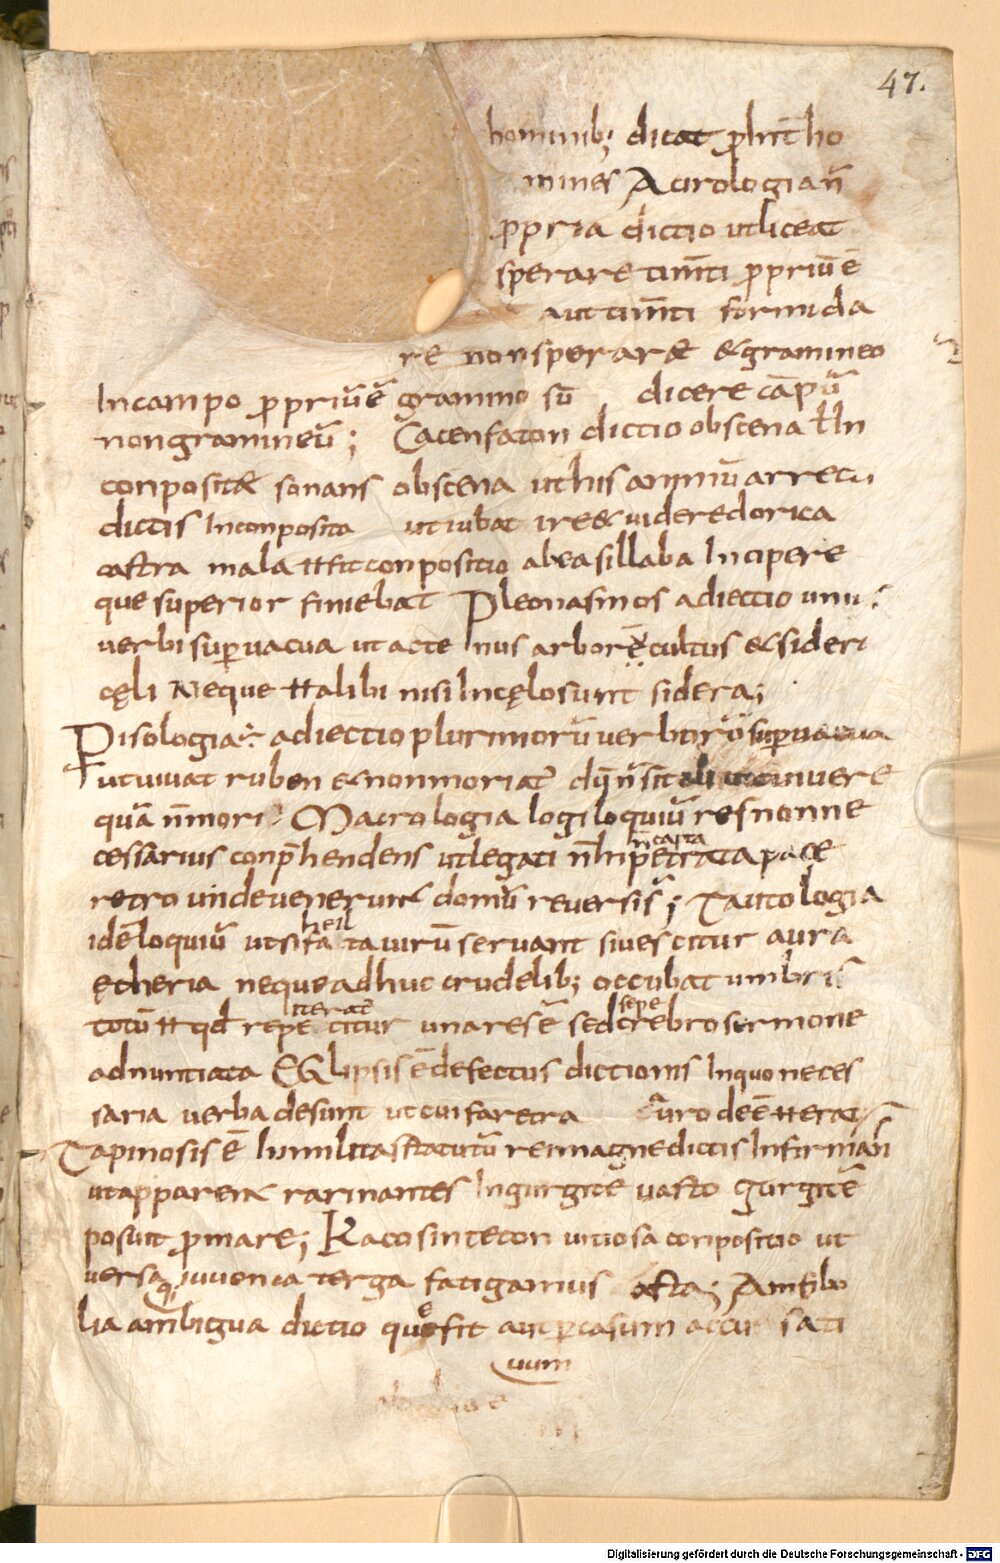 47.
hominib; dicat ꝓhr̄t ho
mines Acirologia n̄
ꝓpria dictio ut liceat
sperare tim̄ti ꝓpriū ē
aut tim̄ti formida
re non sperare & gramineo
In campo ꝓpriū ē gramine sū dicere cāpū
non gramineū; Cacenfaton dictio obscena ł In
conposite sonans obscena ut his animū arrecti
dictis Inconposita ut iubat ire & videre dorica
castra mala ħ fit conpositio ab ea sillaba Incipere
que superior finiebat Pleonasmos adiectio uniu
verbi sup̱vacua ut acte nus arborē cultus & sideri
cęli Neque ħ alibi nisi In cęlo sunt sidera;
Pisologia adiectio plurimorū verborū sup̱vacua
ut vivat ruben & non moriat̄ vivere
quā n̄ mori Macrologia logiloquiū res non ne
cessarias conp̄hendens ut legati n̄ Inpetrata pace
n̄ capta
retro unde venerunt domū reversi s̄; Tautologia
idē loquiū ut si fata virū servant si vescitur aura
heil
ętheria neque adhuc crudelib; occubat umbris
totū ħ qd repetitur una res ē sed crebro sermone
iterat̄
sepe
adnuntiata Eclipsis ē defectus dictionis In quo neces
saria verba desunt ut cui faretra auro deē ħ erat
Tapinosis ē humilitas statutū rei magne dictis Infirman̄
ut apparent rari nantes In gurgite vasto gurgitē
posuit ꝓ mare; Kacosinteton vitiosa conpositio ut
versaq; iuvenca terga fatigamus asta; Amfibo
lia ambigua dictio que fit aut ꝑ casum accu sati
uum
Digitalisierung gefördert durch die Deutsche Forschungsgemeinschaft - DFG